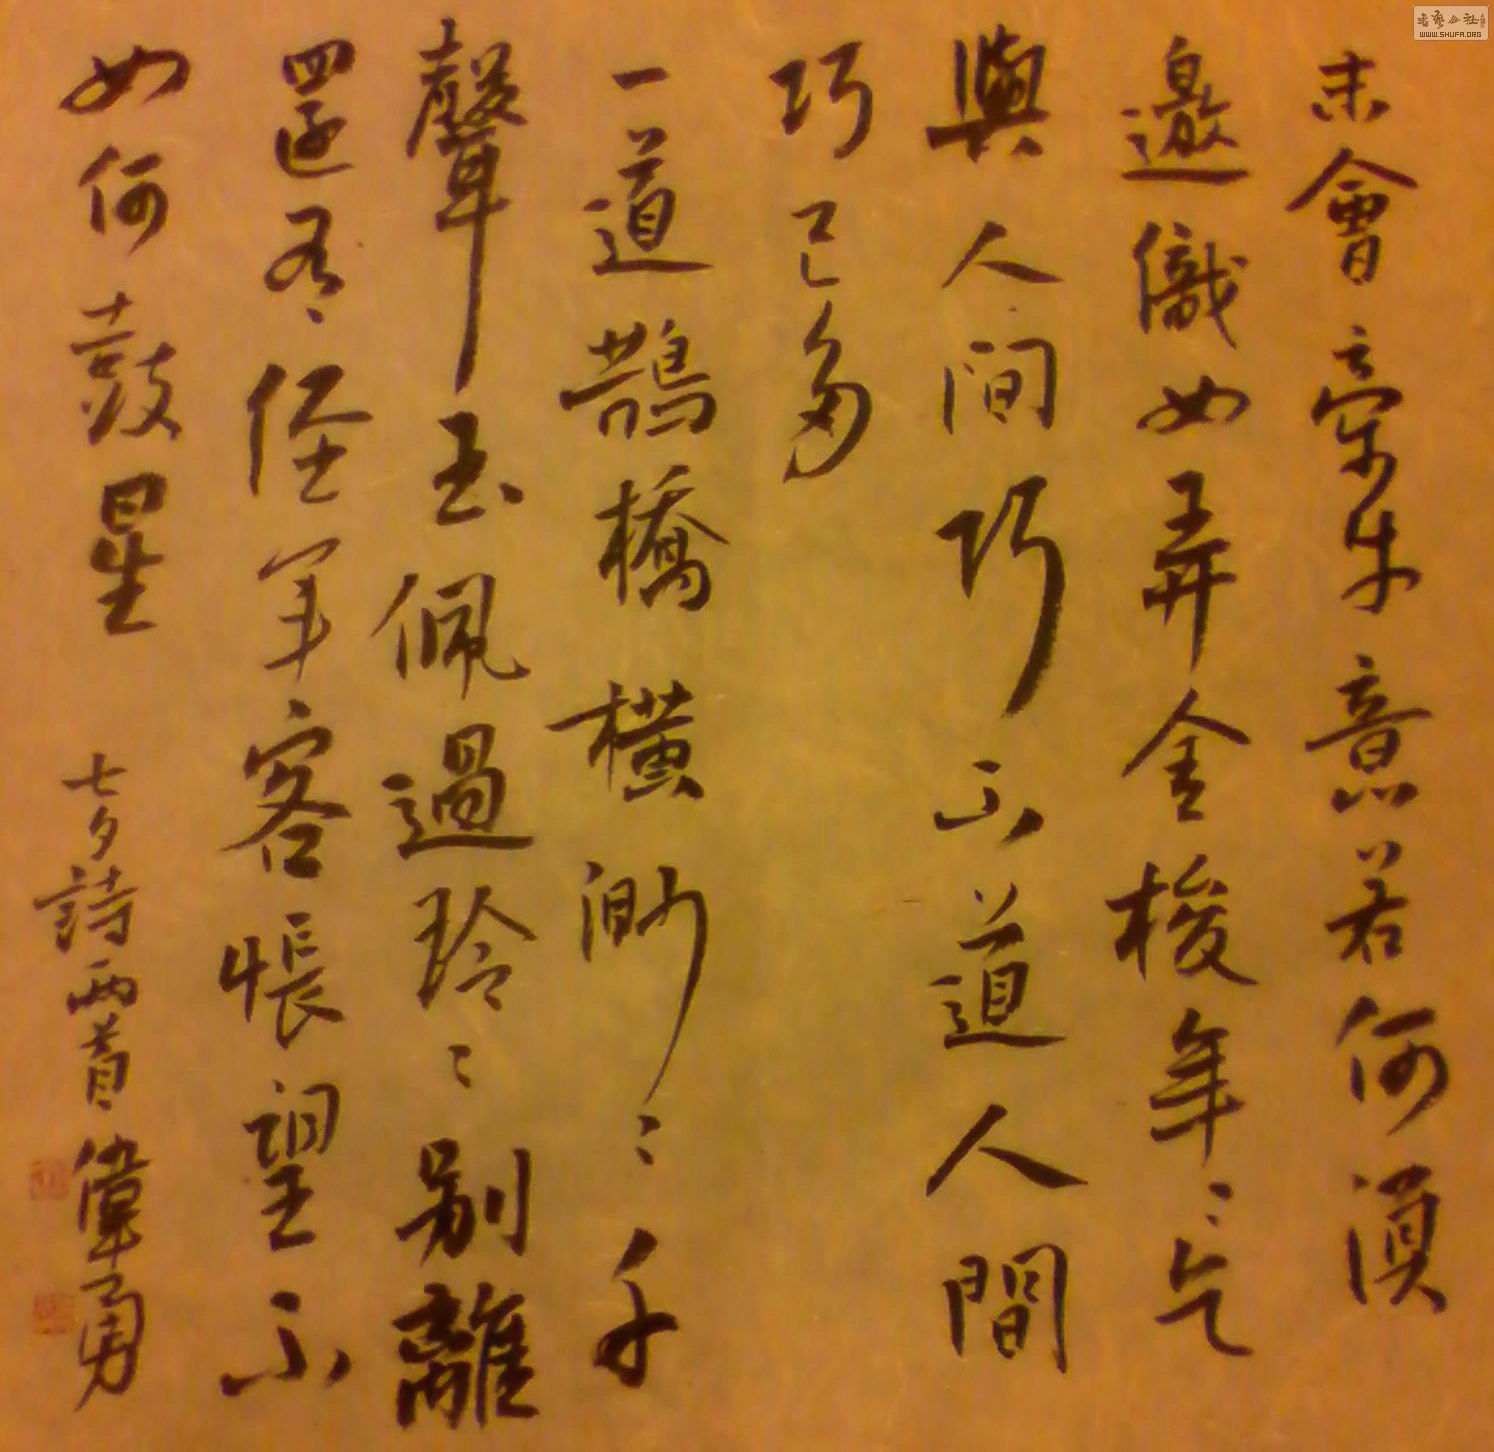 未會牽牛意若何須
邀織女弄金梭年〻乞
與人間巧不道人間
巧已多
一道鵲橋橫渺〻千
聲玉佩過玲〻別離
還有經年客悵望不
如何鼓星 七夕詩兩首 偉勇
WWW.SHUFA.ORG